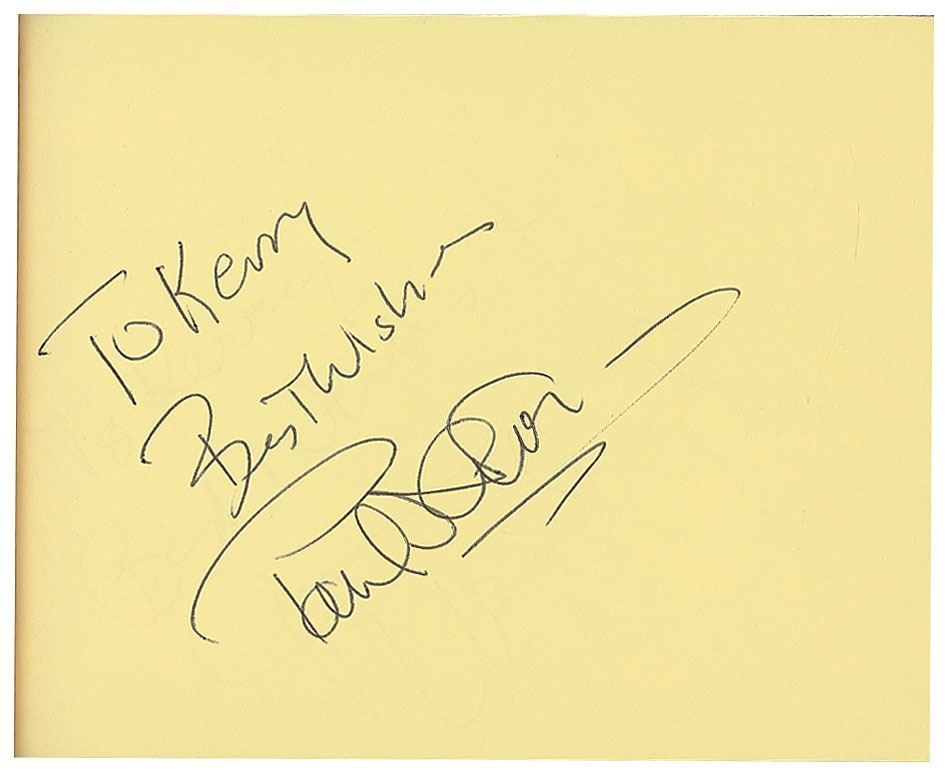 To Kerry
Best Wishes
Paul